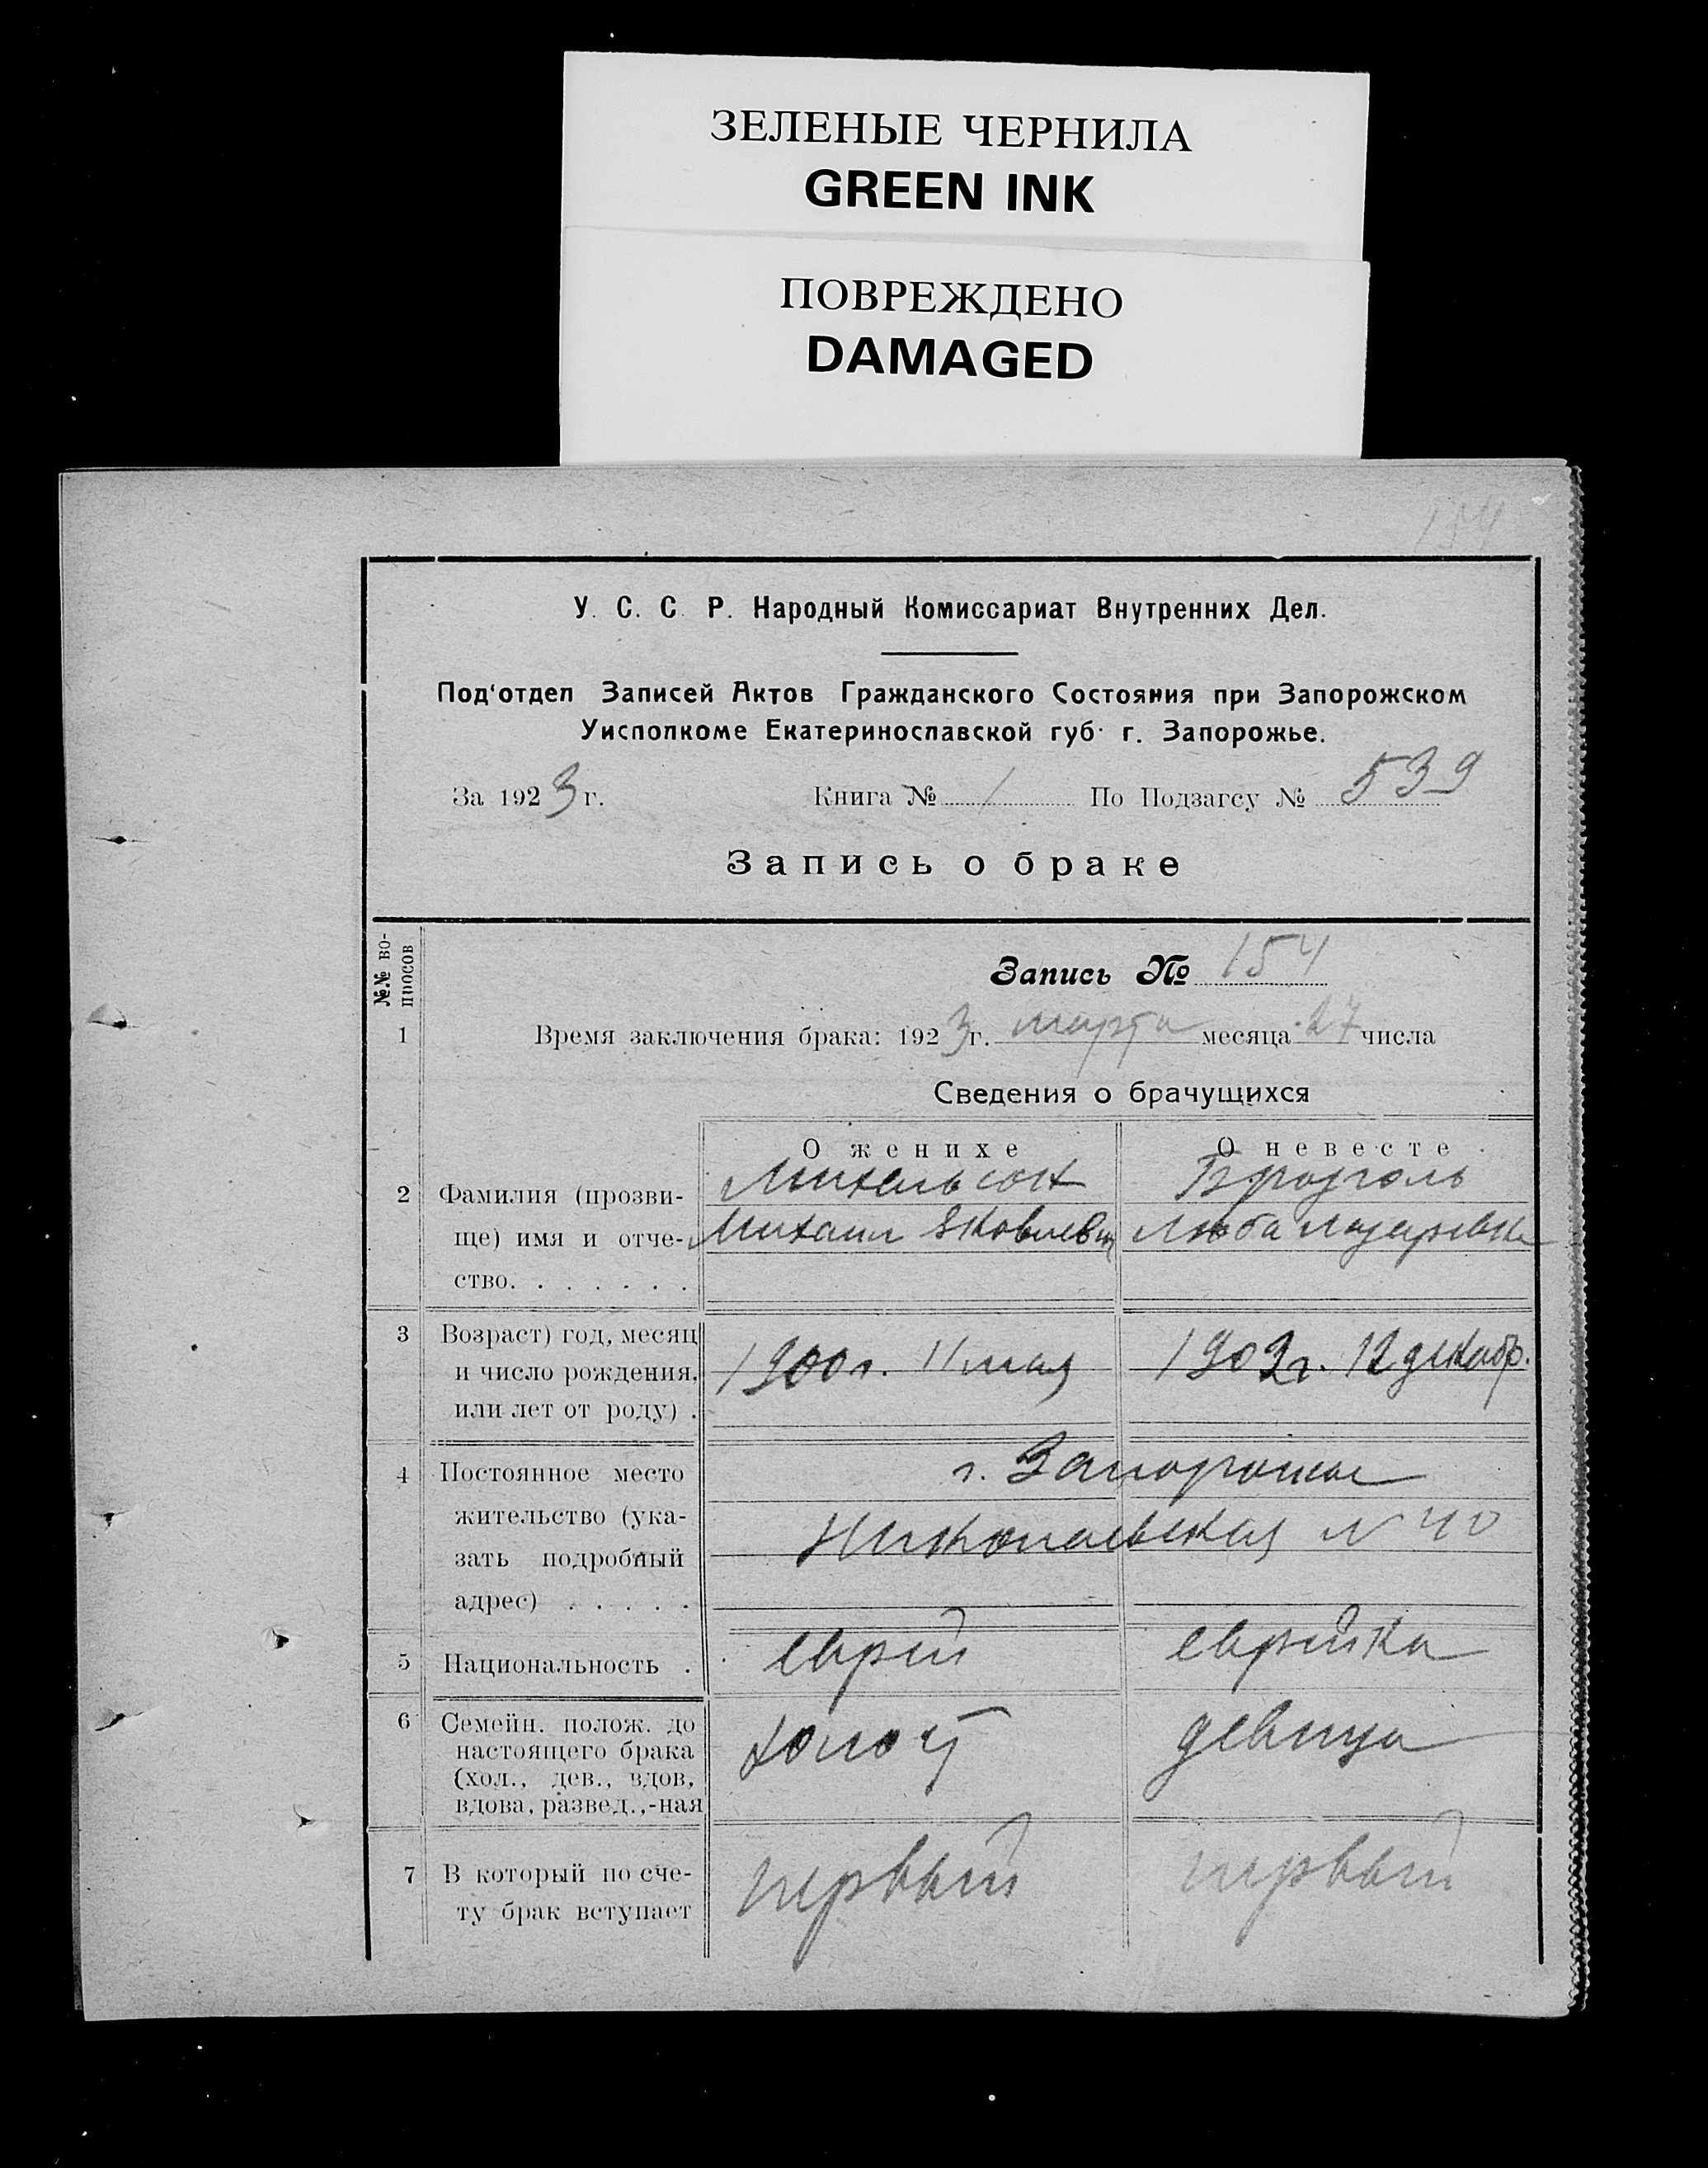 ЗЕЛЕНЫЕ ЧЕРНИЛА
GREEN INK
ПОВРЕЖДЕНО
DAMAGED
154
У. С. С. Р. Народный Комиссариат Внутренних Дел.
Под'отдел Записей Актов Гражданского Состояния при Запорожском
Уисполкоме Екатеринославской губ. г. Запорожье.
За 1923 г. Книга № 1 По Подзагсу № 539
Запись о браке
№№ во-
просов
Запись № 154
1 Время заключения брака: 1923 г. марта месяца 27 числа
Сведения о брачущихся
О женихе О невесте
2 Фамилия (прозви- Михельсон
ще) имя и отче- Михаил Яковлевич Люба Лазаревна
ство. . . . . . .
3 Возраст) год, месяц
и число рождения, 1900 г. 11 мая 1902 г. 12 декабр.
или лет от роду) .
4 Постоянное место г. Запорожье
жительство (ука-
зать подробный Никопольская № 40
адрес) . . . . .
5 Национальность . еврей еврейка
6 Семейн. полож. до
настоящего брака холост девица
(хол., дев., вдов,
вдова, развед.,-ная
7 В который по сче- первый первый
ту брак вступает